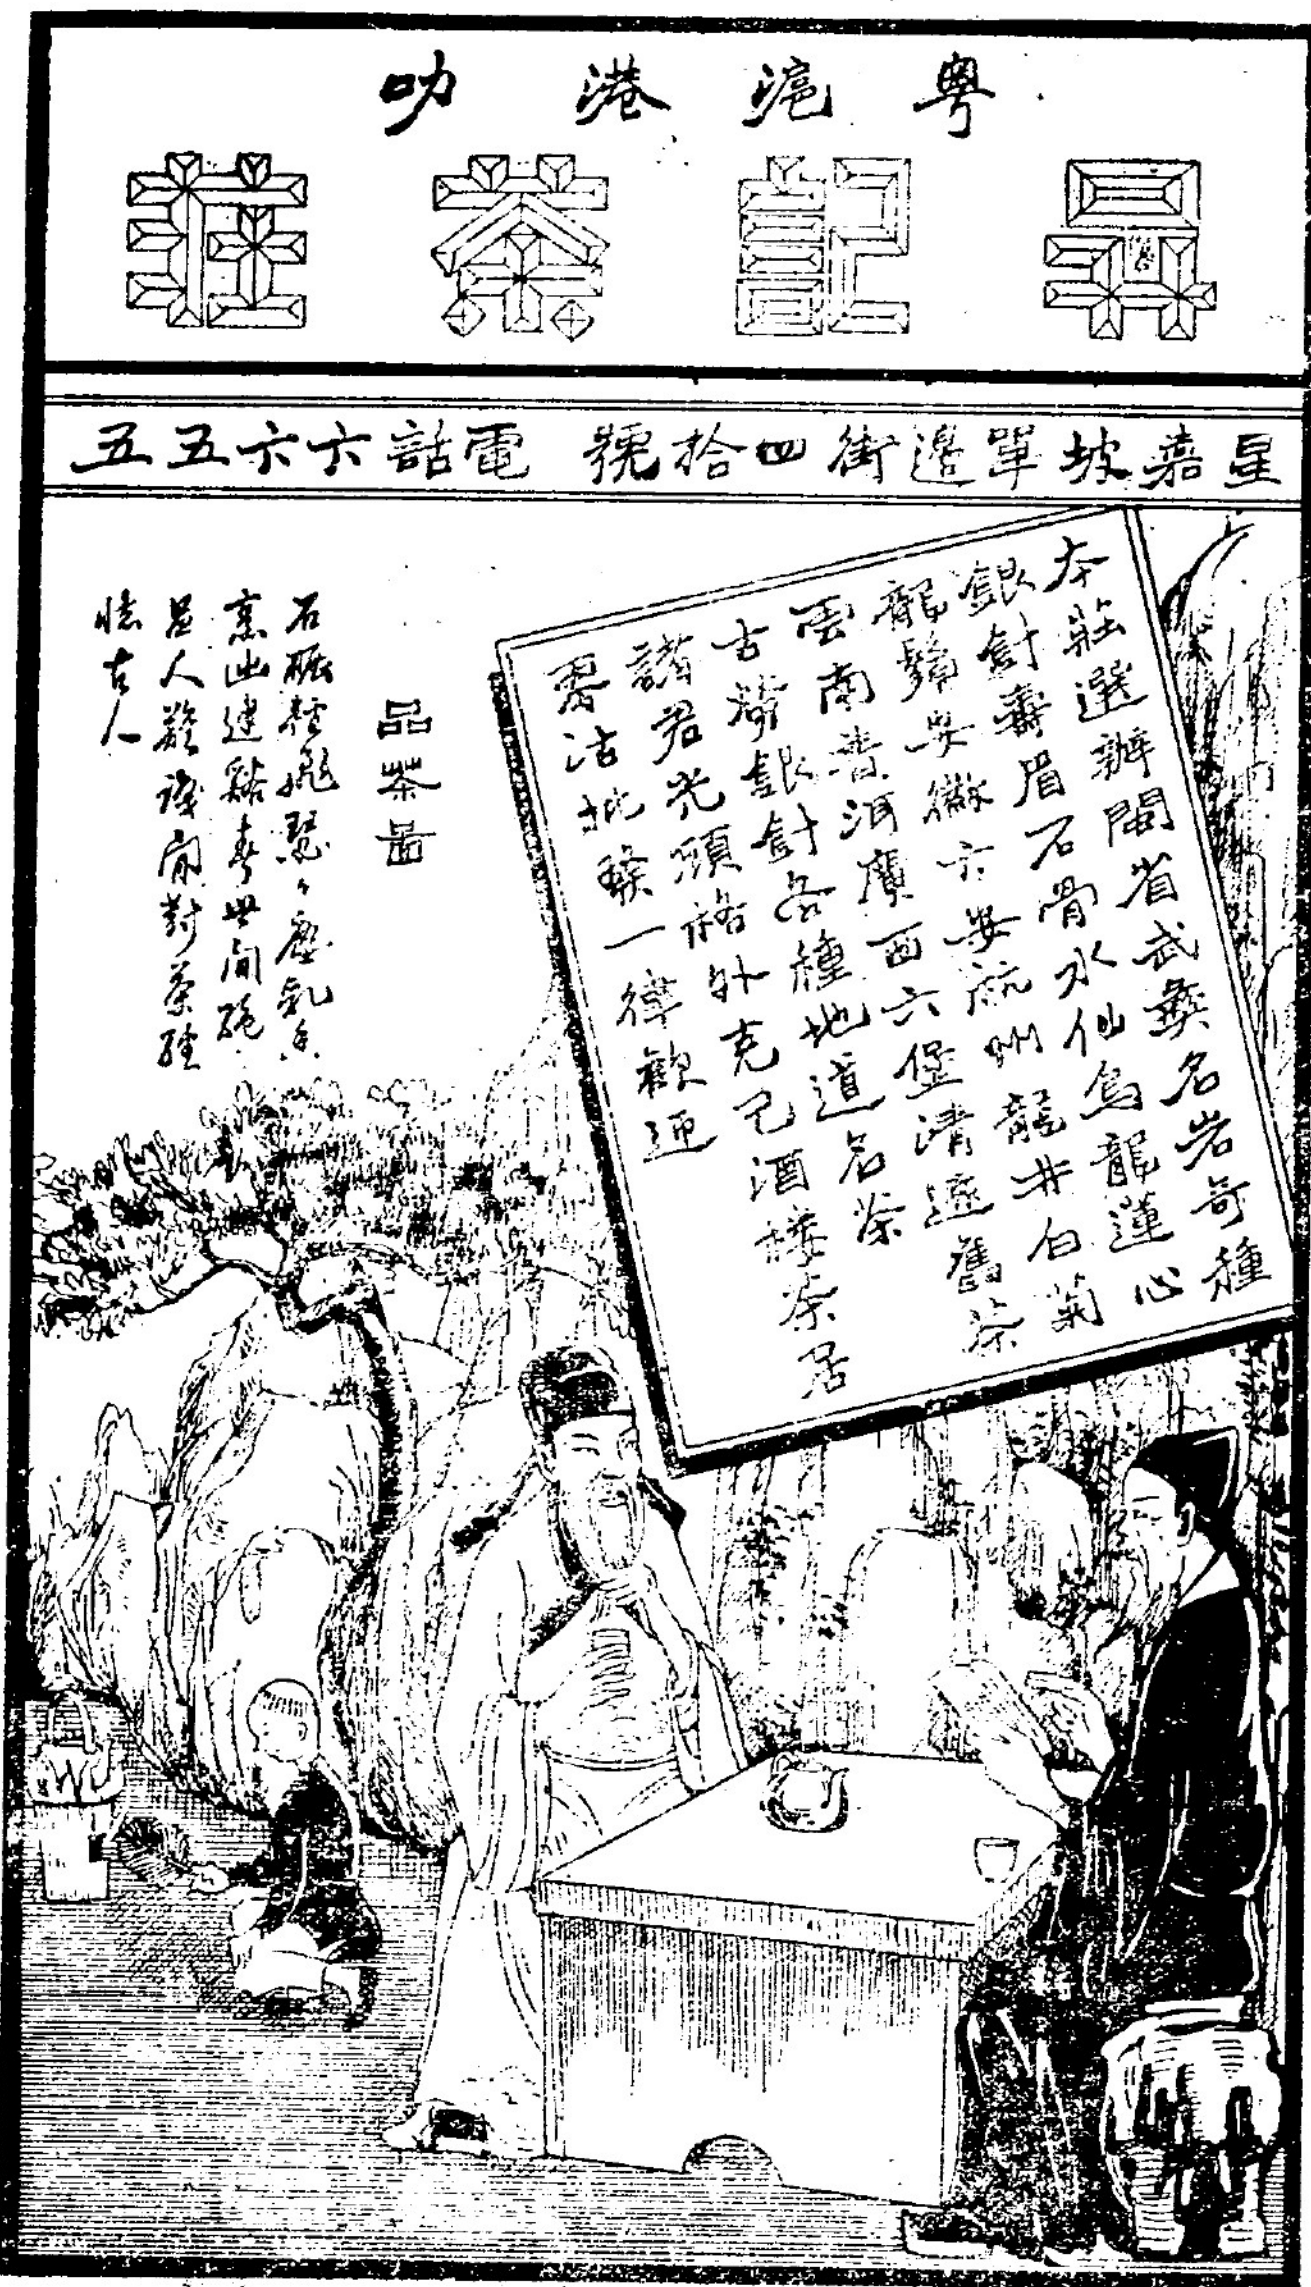 粵滬港叻
昇記茶莊
星嘉坡單邊街四拾號 電話六六五五
本莊選辦閩省武彝名岩奇種
銀針壽眉石骨水仙烏龍蓮心
龍鬚安徽六安杭州龍井白菊
雲南普洱廣西六堡清遠舊茶
古勞銀針各種地道名茶
諸君光顧格外克己酒樓茶居
零沽批發一律歡迎
品茶圖
石碾輕飛瑟々塵乳香
烹出建谿春世間絕
品人難識閒對茶經
憶古人